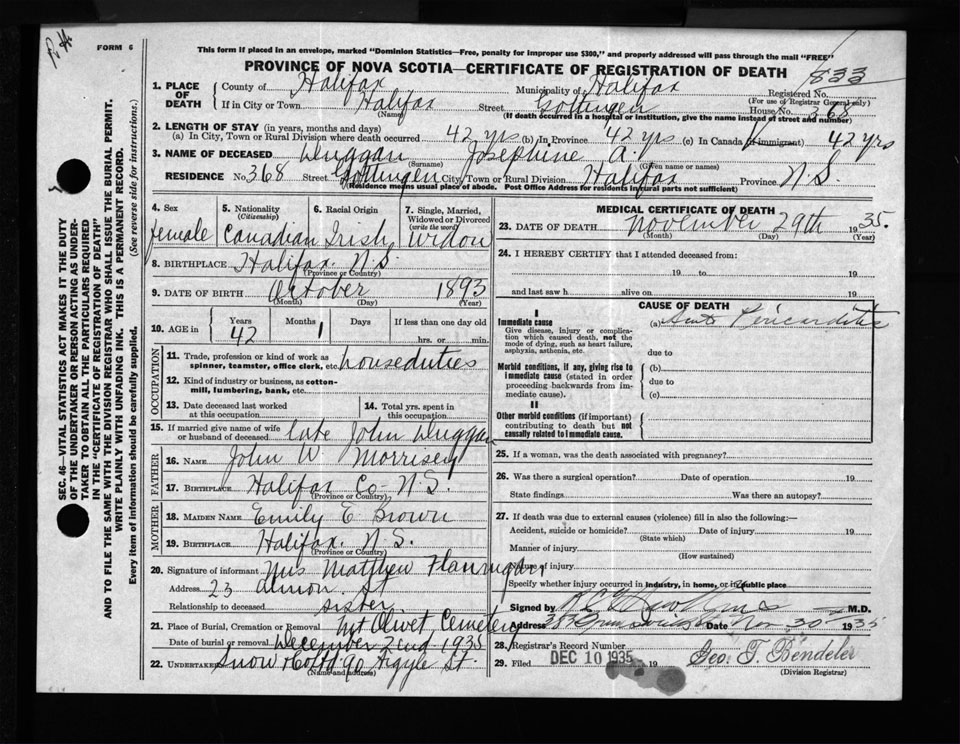 FORM 6
This form if placed in an envelope, marked "Dominion Statistics—Free, penalty for improper use $300," and properly addressed will pass through the mail "FREE"
PROVINCE OF NOVA SCOTIA—CERTIFICATE OF REGISTRATION OF DEATH
833
1. PLACE OF DEATH County of Halifax Municipality of Halifax Registered No.
(For use of Registrar General only)
If in City or Town Halifax Street Gottingen House No. 368
(Name) (If death occurred in a hospital or institution, give the name instead of street and number)
2. LENGTH OF STAY (in years, months and days)
(a) In City, Town or Rural Division where death occurred 42 yrs (b) In Province 42 yrs (c) In Canada (if immigrant) 42 yrs
3. NAME OF DECEASED Duggan Josephine A.
(Surname) (Given name or names)
RESIDENCE No. 368 Street Gottingen City, Town or Rural Division Halifax Province N.S.
(Residence means usual place of abode. Post Office Address for residents in rural parts not sufficient)
4. Sex female
5. Nationality (Citizenship) Canadian
6. Racial Origin Irish
7. Single, Married, Widowed or Divorced (write the word) Widow
8. BIRTHPLACE Halifax N.S.
(Province or Country)
9. DATE OF BIRTH October 1893
(Month) (Day) (Year)
10. AGE in Years 42 Months 1 Days If less than one day old hrs. or min.
OCCUPATION
11. Trade, profession or kind of work as spinner, teamster, office clerk, etc. houseduties
12. Kind of industry or business, as cotton-mill, lumbering, bank, etc.
13. Date deceased last worked at this occupation
14. Total yrs. spent in this occupation
15. If married give name of wife or husband of deceased late John Duggan
FATHER
16. NAME John W. Morrisey
17. BIRTHPLACE Halifax Co. N.S.
(Province or Country)
MOTHER
18. MAIDEN NAME Emily E. Brown
19. BIRTHPLACE Halifax. N.S.
(Province or Country)
20. Signature of informant Mrs Matthew Flannigan
Address 23 Almon St
Relationship to deceased sister
21. Place of Burial, Cremation or Removal Mt Olivet Cemetery
Date of burial or removal December 2nd 1935
22. UNDERTAKER Snow & Co Ltd 90 Argyle St.
(Name and address)
MEDICAL CERTIFICATE OF DEATH
23. DATE OF DEATH November 29th 1935.
(Month) (Day) (Year)
24. I HEREBY CERTIFY that I attended deceased from:
19 to 19
and last saw h alive on 19
CAUSE OF DEATH
I
Immediate cause
Give disease, injury or complication which caused death, not the mode of dying, such as heart failure, asphyxia, asthenia, etc.
(a) Pericarditis
due to
Morbid conditions, if any, giving rise to immediate cause (stated in order proceeding backwards from immediate cause).
(b)
due to
(c)
II
Other morbid conditions (if important) contributing to death but not causally related to immediate cause.
25. If a woman, was the death associated with pregnancy?
26. Was there a surgical operation? Date of operation 19
State findings Was there an autopsy?
27. If death was due to external causes (violence) fill in also the following:—
Accident, suicide or homicide? Date of injury 19
(State which)
Manner of injury
(How sustained)
Nature of injury
Specify whether injury occurred in industry, in home, or in public place
Signed by M.D.
Address Date Nov 30th 1935
28. Registrar's Record Number
29. Filed DEC 10 1935 19 Geo. T. Bendeler
(Division Registrar)
SEC. 46—VITAL STATISTICS ACT MAKES IT THE DUTY
OF THE UNDERTAKER OR PERSON ACTING AS UNDERTAKER
TO OBTAIN ALL THE PARTICULARS REQUIRED
IN THE "CERTIFICATE OF REGISTRATION OF DEATH"
AND TO FILE THE SAME WITH THE DIVISION REGISTRAR WHO SHALL ISSUE THE BURIAL PERMIT.
WRITE PLAINLY WITH UNFADING INK. THIS IS A PERMANENT RECORD.
Every item of information should be carefully supplied. (See reverse side for instructions.)